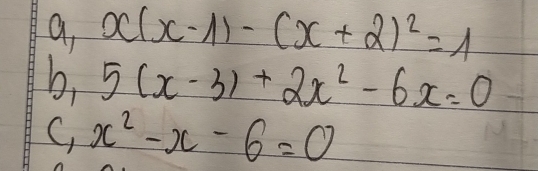 a, x(x-1) - (x+2)² = 1
b, 5(x-3) + 2x² - 6x = 0
c, x² - x - 6 = 0